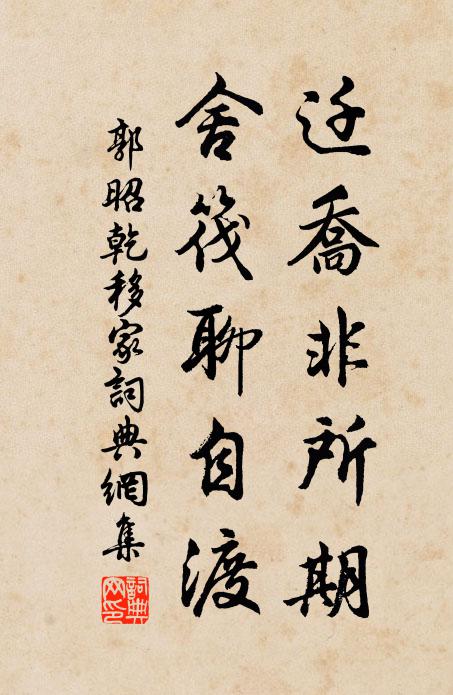 迁喬非所期
舍筏聊自渡
郭昭乾移家詞典網集
詞典网印